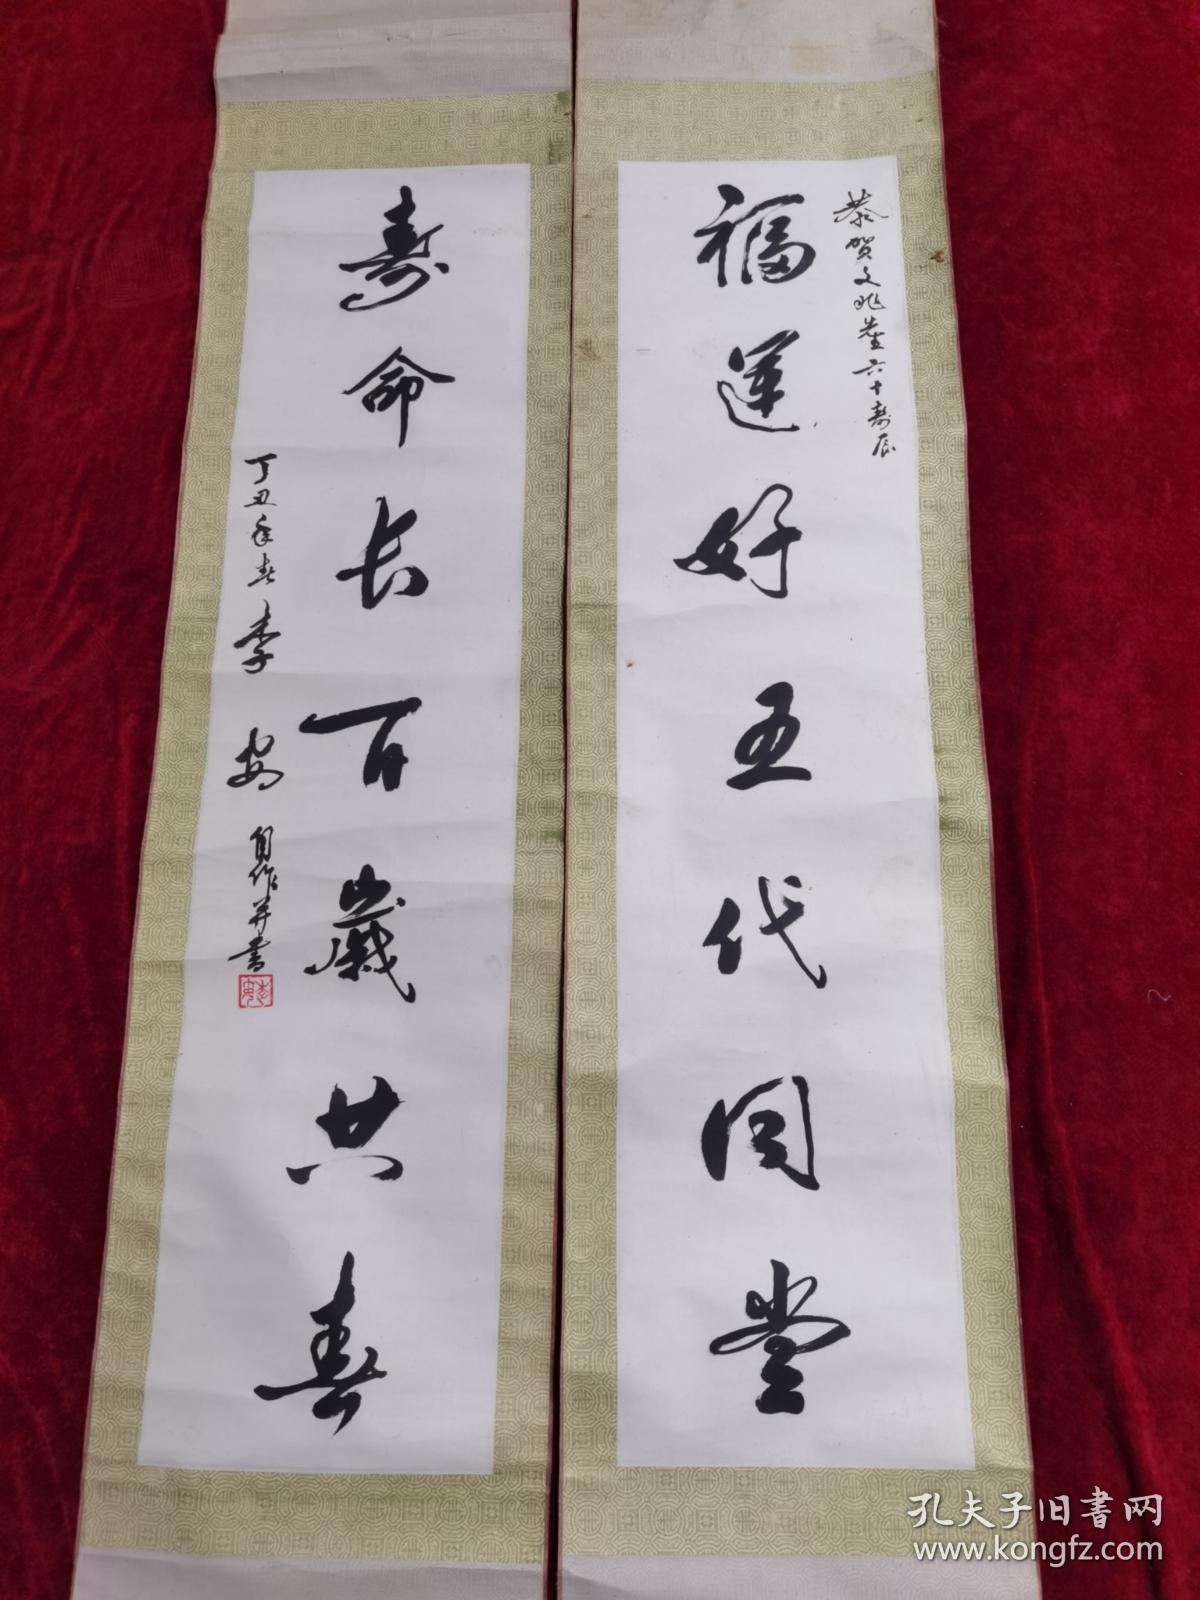 恭贺文兆先生六十寿辰
福运好五代同堂
寿命长百岁共春
丁丑年春李安自作并书
李安
孔夫子旧书网
www.kongfz.com